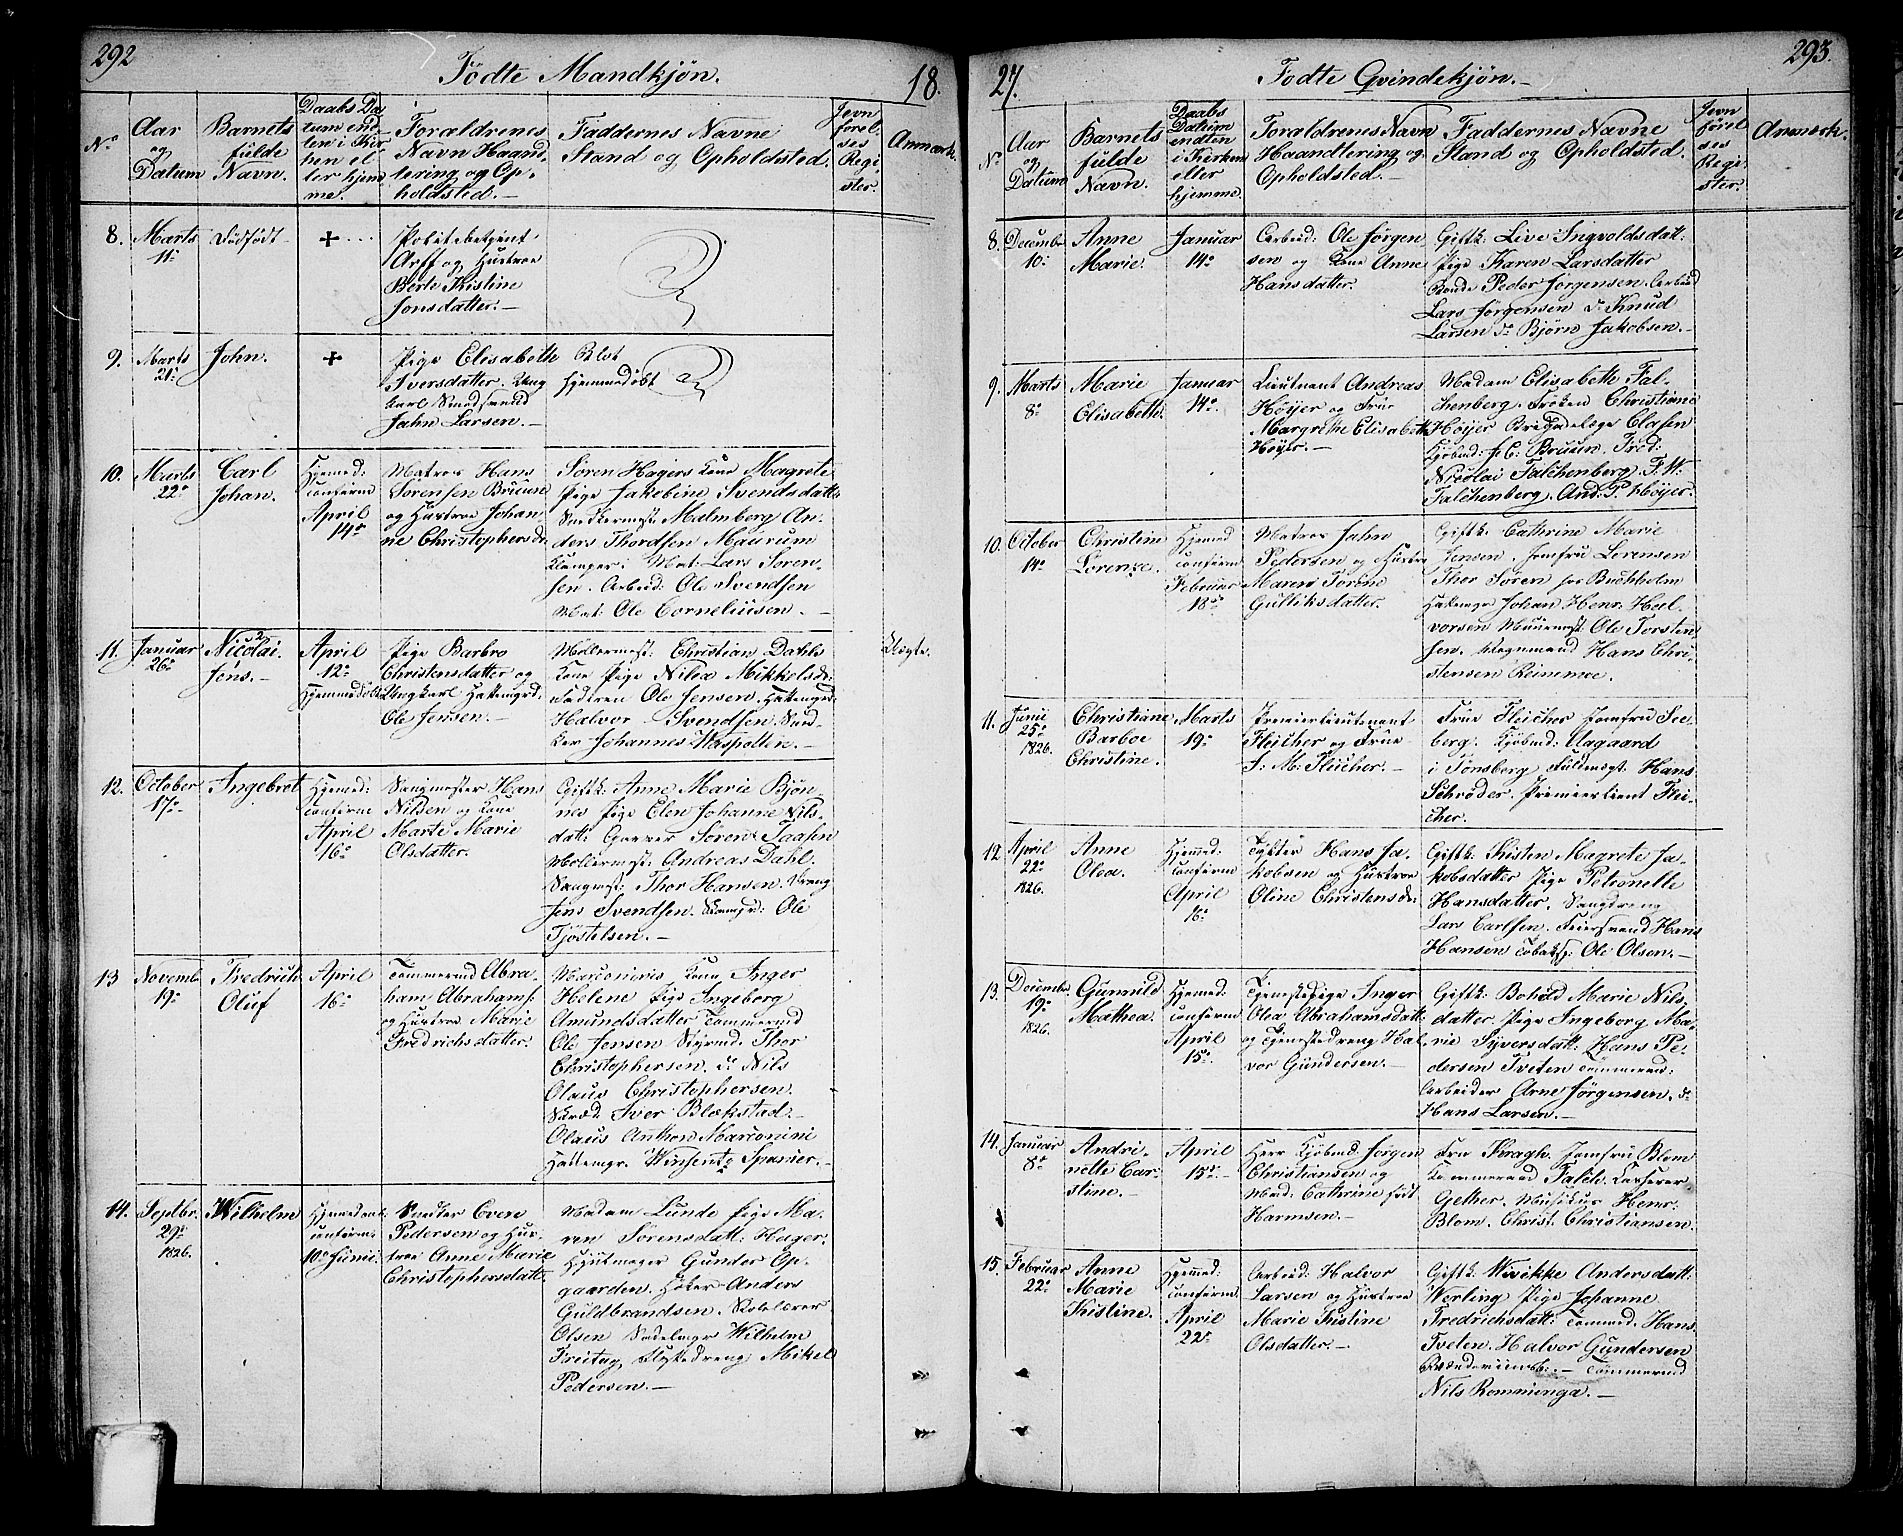 292
Födte Mandkjøn.
18.
No
Aar
og
Datum
Barnets
fulde
Navn.
Daabs Da-
tum end-
ten i Kir-
ken el
ler hjem
me.
Forældrenes
Navn Haand-
tering og Op-
holdsted.
Faddernes Navne
Stand og Opholdsted.
Jevn
förel-
ses
Regi-
ster.
Anmærk.
8.
Marts
11te
Dödfödt
+
Politibetjent
Arft og Hustrue
Berte Kistine
Jonsdatter.
9.
Marts
21de
John.
+
Pige Elisabeth
Iversdatter. Ung
karl
Jahn Larsen.
Blot
Hjemmedöbt
10.
Marts
22de
Carl
Johan.
Hjemed:
confirme
April
14de
Matros Hans
Sörensen Bruun
og Hustrue Johan
ne Christophersda
Sören Hagers Kone Magrete
Pige Jakobine Svendsdatter
Malmberg An-
ders Thordsen Maurum
Mat: Lars Sören-
sen. Arbeid: Ole Svendsen
Mat: Ole Corneliusen.
11.
Januar
26de
Nicolai
Jens.
April
12te
Hjemmedöbt
Pige Barbro
Christensdatter og
Ungkarl Hattemgrd.
Ole Jensen.
Möllermest: Christian Dahls
Kone Pige Nilea Mikkelsdr.
Ole Jensen. Hattemgrd.
Halvor Svendsen.
Johannes Waspotten.
Uægte.
12.
October
17de
Ingebret
Hjemed:
confirme
April
16de
Sangmester Hans
Nilsen og Kone
Marte Marie
Olsdatter.
Giftk: Anne Marie Bjön-
nes Pige Elen Johanne Nils-
datt: Garver Sören Taasen
Möllermest: Andreas Dahl.
Saugmest: Thor Hansen. Dreng
Jens Svendsen. Ole
Tjöstelsen.
13
Novemb.
19de
Fredrich
Oluf
April
16de
Tömmermd Abra
ham Abrahams:
og Hustrue Marie
Fredrichsdatter.
Marconinis Kone Inger
Helene Pige Ingeborg
Amundsdatter Tömmermd
Ole Jensen Styrmd. Thor
Christophersen. do Nils
Olaus Christophersen.
Skræd. Iver Blækstad.
Olaus Anthon Marconini
Hattemgr. Winsente Spanier.
14.
Septbr.
29de
1826.
Wilhelm
Hjemedøbt
confirm:
10de Junii.
Snedker Evere
Pedersen og Hus-
true Anne Marie
Christophersdatt.
Madam Lunde Pige Ma-
ren Sörensdatt: Hager.
Hjulmager Gunder Op-
gaarden. Höker Anders
Guldbrandsen. Skolelærer
Olsen Sadelmgr Wilhelm
Freitag. Mikel
Pedersen.
27.
Fodte Qvindekjøn.
293.
No
Aar
og
Datum
Barnets
fulde
Navn.
Daabs
Datum
endten
i Kirken
eller
hjemme.
Forældrenes Navn
Haandtering og
Opholdsted.
Faddernes Navne
Stand og Opholdsted.
Jevn
förel
ses
Regi-
ster.
Anmærk.
8.
Decembr
10de
Anne
Marie.
Januar
14de
Arbeid: Ole Jörgen
sen og Kone Anne
Hansdatter.
Giftk: Live Ingvoldsdatt:
Pige Karen Larsdatter
Bonde Peder Jorgensen. Arbeid
Lars Jörgensen do Knud
Larsen do Björn Jakobsen.
9.
Marts
8de
Marie
Elisabeth.
Januar
14de
Lieutnant Andreas
Höyer og Frue
Margrethe Elisabeth
Höyer.
Madam Elisabeth Fal-
chenberg. Fröken Christiane
Höyer Brigadelæge Clasen
Kjöbmd: Fr: C: Bruun. Fred:
Nicolai Falchenberg. F. W.
Falchenberg. And: P. Höyer.
10.
October
14de
Christine
Lorenze.
Hjemed
confirm
Februar
18de
Matros Jahn
Pedersen og Hustru
Maren Torine
Gulliksdatter.
Giftk: Cathrine Marie
Jensen. Jomfru Lorensen
Thor Sören for Buchholm
Hattemgr Johan Henr: Hal-
vorsen Muurmest: Ole Torsten
sen. Hans Chri-
stensen Reimmee.
11.
Junii
25de
1826.
Christiane
Barboe
Christine.
Marts
19de
Premierlieutenant
Fleicher og Frue
F: M: Fleicher.
Frue Fleicher Jomfru See-
berg. Kjöbmd: Aagaard
i Tonsberg Fuldmægt: Hans
Schröder. Premierlieut Flei-
cher.
12.
April
22de
1826.
Anne
Olea.
Hjemed:
confirm
April
16de
Hans Ja-
kobsen og Hustrue
Oline Christensdr
Giftk: Kisten Magrete Ja-
kobsdatter Pige Petronelle
Hansdatter.
Lars Carlsen. Feiersvend Hans
Hansen Tobaksp: Ole Olsen.
13.
Decembr
19de
1826.
Gunnild
Mathea.
Hjemed:
confirm
April
15de
Tjenestepige Inger
Olea Abrahamsdatt:
og Tjenestedreng Hal
vor Gundersen.
Giftk: Bohild Marie Nils-
datter. Pige Ingeborg Ma-
rie Syversdatt: Hans Pe-
dersen Tveten Tömmermd:
Arbeider Arne Jörgensen. do
Hans Larsen.
14.
Januar
8de
Andri-
nette Car-
stine.
April
15de
Herr Kjöbmd Jörgen
Christiansen og
Mad: Cathrine födt
Harmsen.
Fru Kragh. Jomfru Blom
Kammerraad Falch. Kasserer
Gether. Musikus Henr:
Blom. Christ. Christiansen.
15.
Februar
22de
Anne
Marie
Kistine.
Hjemed:
confirm
April
22de
Arbeid: Halvor
Larsen og Hustrue
Marie Kistine
Olsdatter.
Giftk: Wivikke Andersdatt:
Werling Pige Johanne
Fredrichsdatt: Tömmmd. Hans
Tveten. Halvor Gundersen
Tömmermd
Nils Romminga.